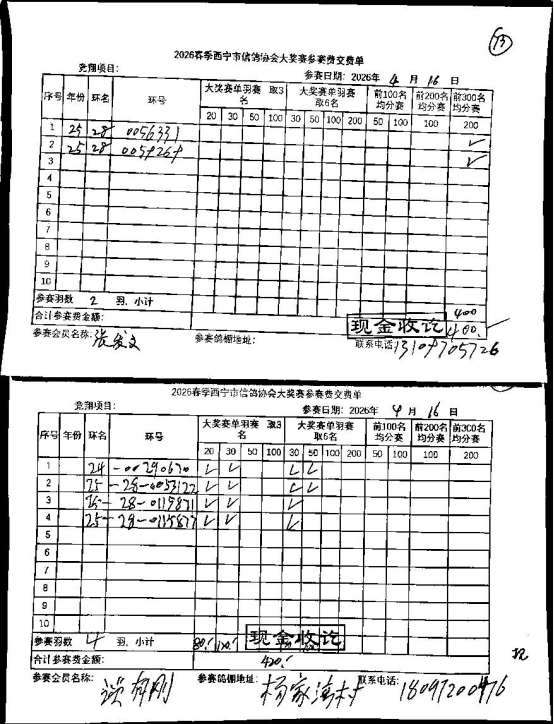 13
2026春季西宁市信鸽协会大奖赛参赛费交费单
竞翔项目： 参赛日期：2026年 4 月 16 日
序号 年份 环名 环号 大奖赛单羽赛 取3名 大奖赛单羽赛 取6名 前100名均分赛 前200名均分赛 前300名均分赛
20 30 50 100 30 50 100 200 50 100 100 200
1 25 28 0056331 ✓
2 25 28 0059269 ✓
3
4
5
6
7
8
9
10
参赛羽数 2 羽，小计 400
合计参赛费金额： 现金收讫 400.
参赛会员名称：张发文 参赛鸽棚地址： 联系电话：13109705726
2026春季西宁市信鸽协会大奖赛参赛费交费单
竞翔项目： 参赛日期：2026年 4 月 16 日
序号 年份 环名 环号 大奖赛单羽赛 取3名 大奖赛单羽赛 取6名 前100名均分赛 前200名均分赛 前300名均分赛
20 30 50 100 30 50 100 200 50 100 100 200
1 24-00290670 ✓ ✓ ✓ ✓
2 25-28-0053122 ✓ ✓ ✓ ✓
3 25-28-0115871 ✓ ✓ ✓
4 25-28-0115877 ✓ ✓ ✓
5
6
7
8
9
10
参赛羽数 4 羽，小计 80. 120. 现金收讫
合计参赛费金额： 420.
参赛会员名称： 参赛鸽棚地址：杨家湾村 联系电话：18097200476